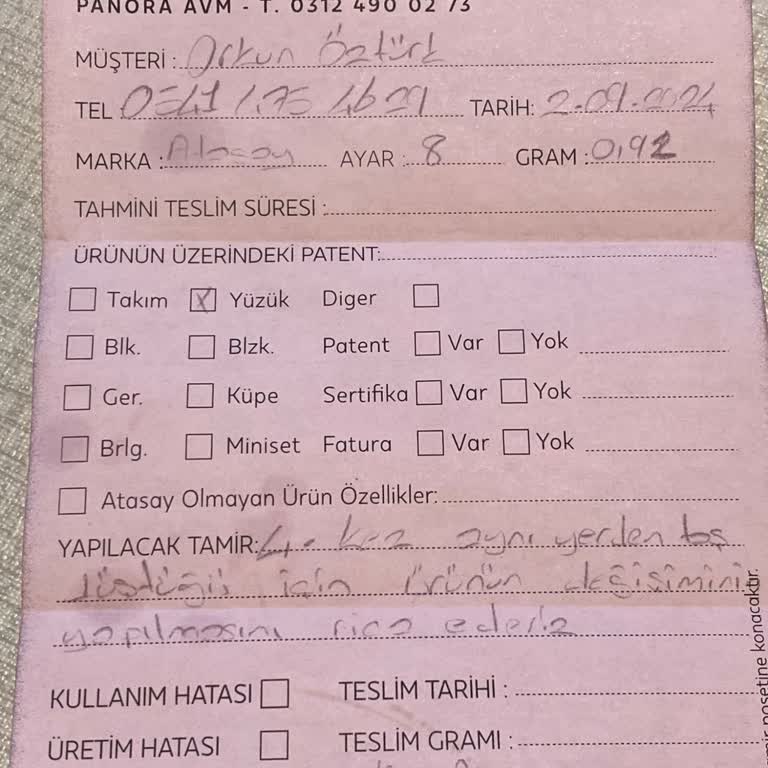 PANORA AVM - T. 0312 490 02 73
MÜŞTERİ : Orkun Öztürk
TEL 0541 175 4629 TARİH: 2.09.2024
MARKA : Atasay AYAR : 8 GRAM : 0,92
TAHMİNİ TESLİM SÜRESİ :
ÜRÜNÜN ÜZERİNDEKİ PATENT:
Takım X Yüzük Diger
Blk. Blzk. Patent Var Yok
Ger. Küpe Sertifika Var Yok
Brlg. Miniset Fatura Var Yok
Atasay Olmayan Ürün Özellikler:
YAPILACAK TAMİR: 4. kez aynı yerden taş
düştüğü için ürünün değişiminin
yapılmasını rica ederiz
KULLANIM HATASI TESLİM TARİHİ :
ÜRETİM HATASI TESLİM GRAMI :
poşetine konacaktır.